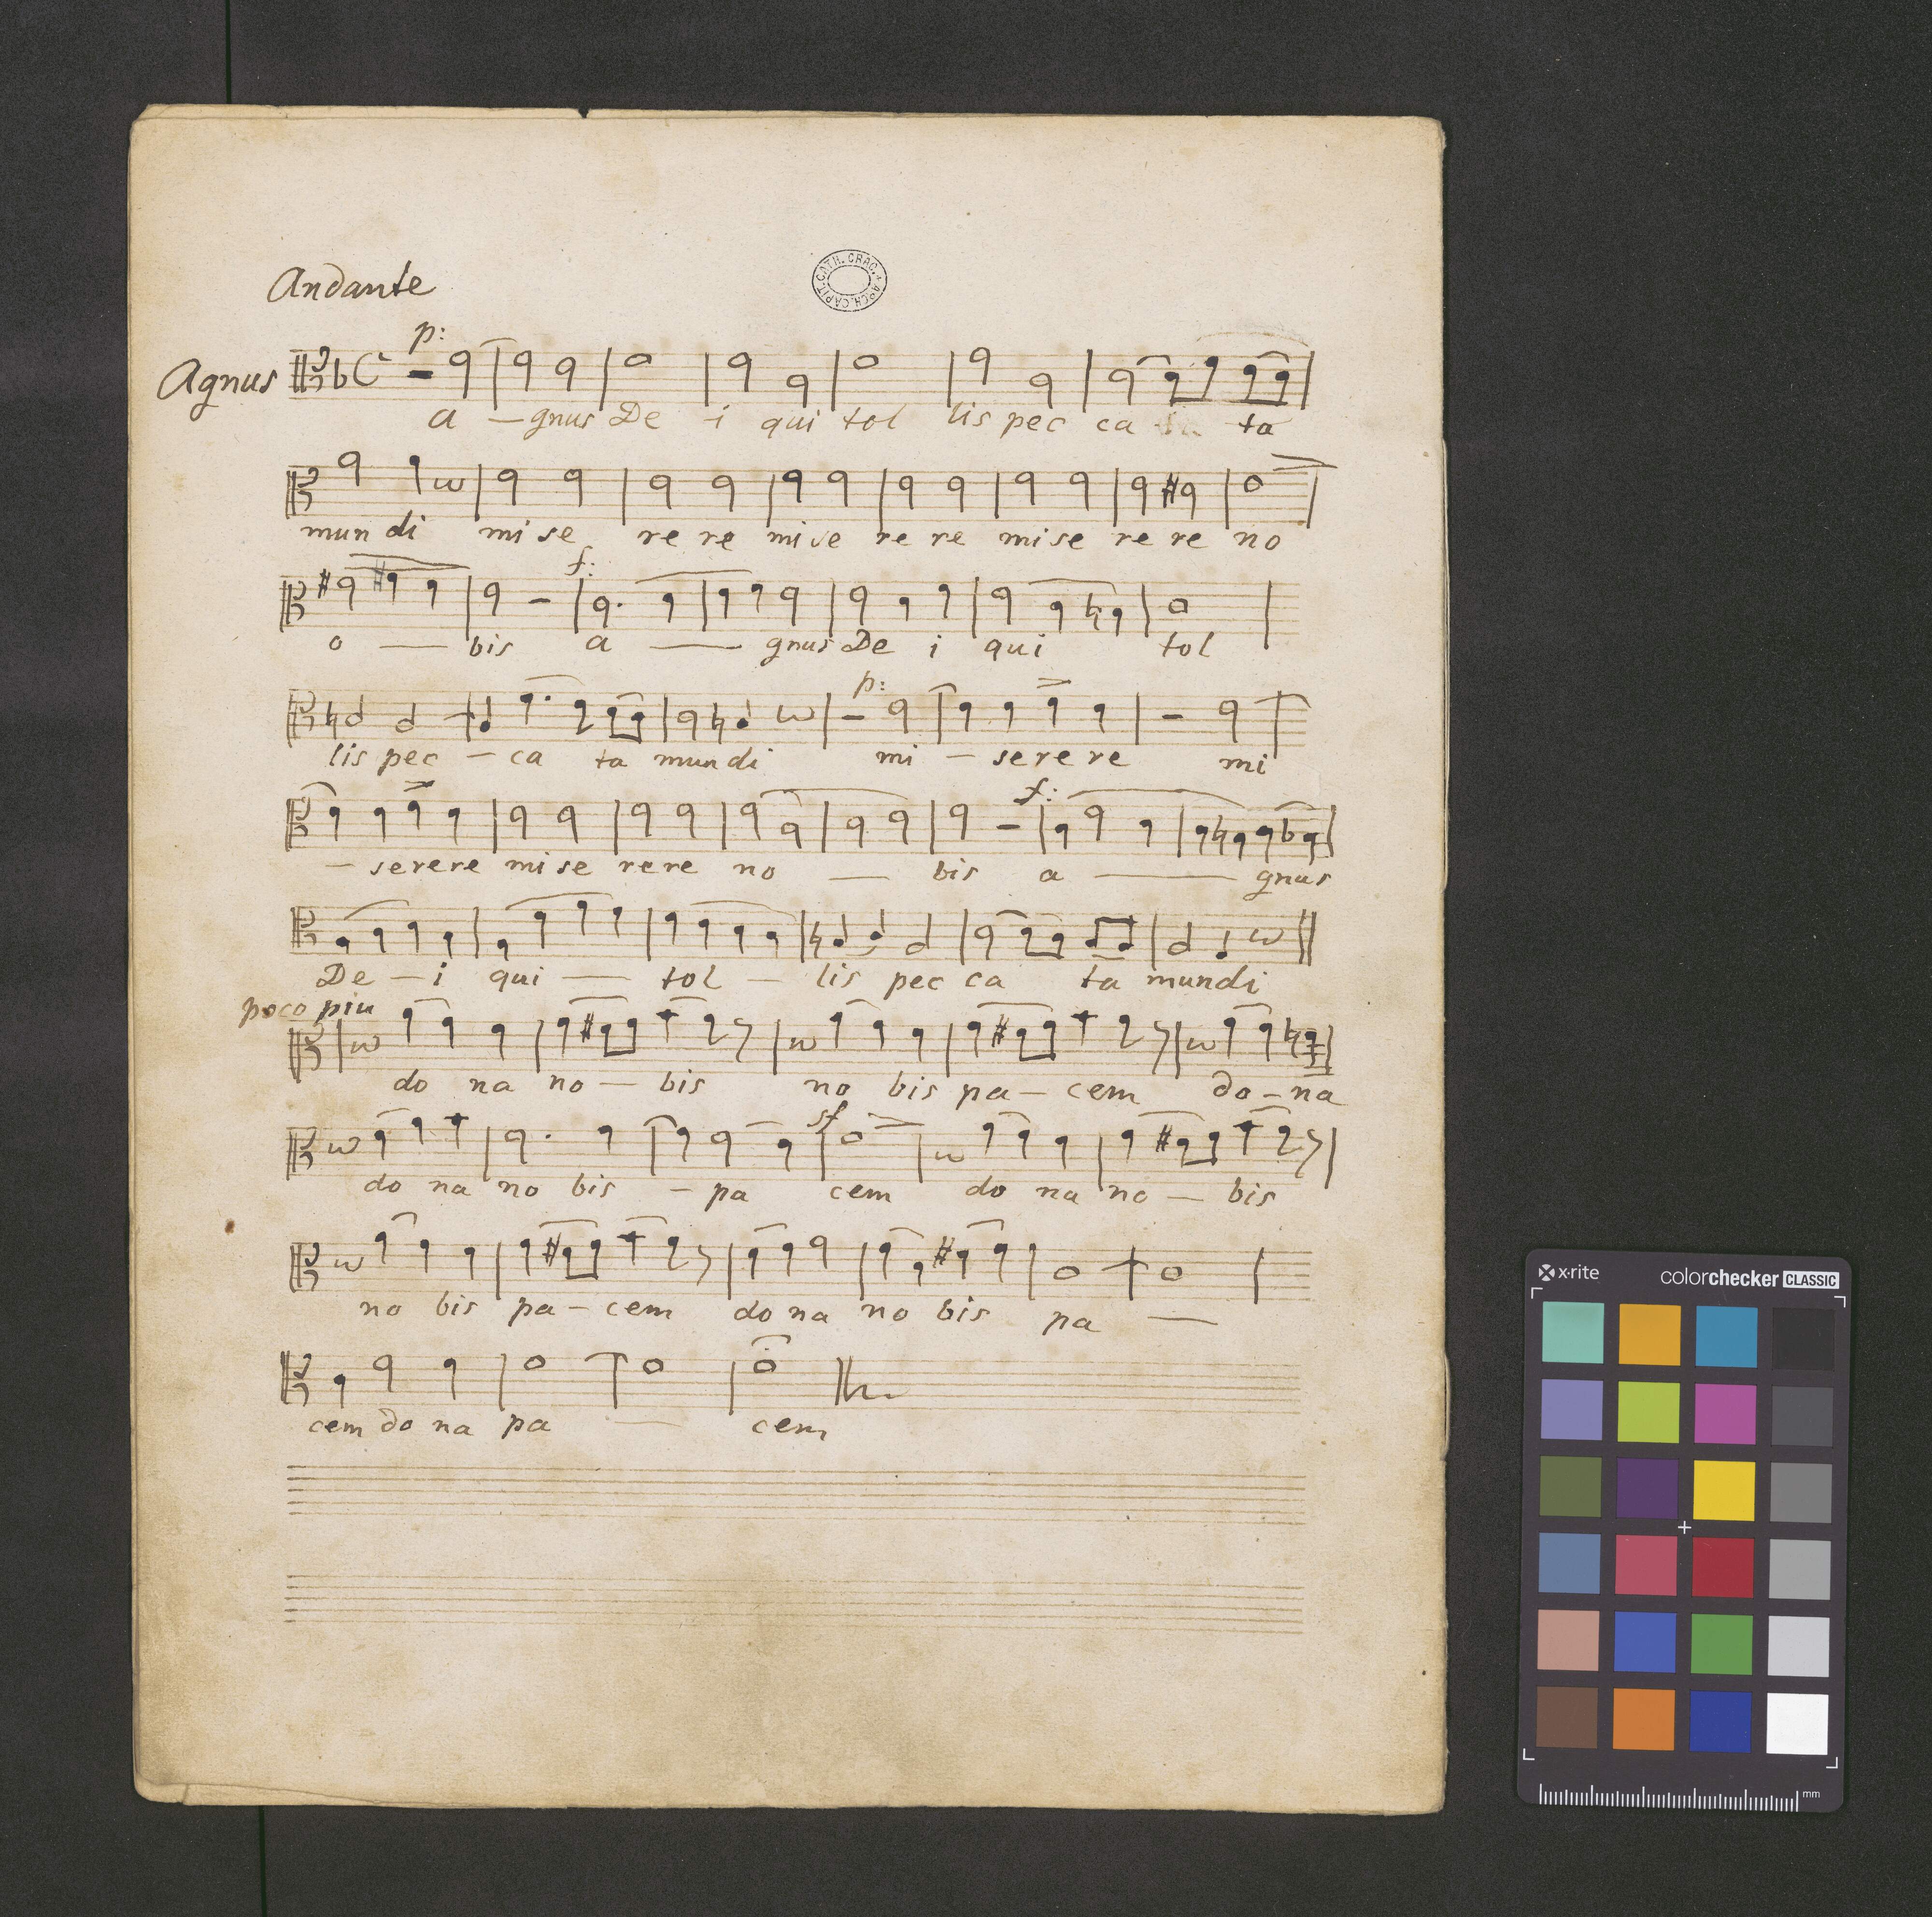 Andante
ARCH. CAPIT. CATH. CRAC.
p:
Agnus
a - gnus De i qui tol lis pec ca ta
mun di mi se re re mi se re re mi se re re no
f:
o — bis a — gnus De i qui tol
p:
lis pec - ca ta mun di mi - se re re mi
f:
- se re re mi se re re no — bis a — gnus
De - i qui — tol - lis pec ca ta mundi
poco piu
do na no - bis no bis pa - cem do - na
sf
do na no bis - pa cem do na no - bis
no bis pa - cem do na no bis pa —
cem do na pa — cem
x-rite colorchecker CLASSIC
mm